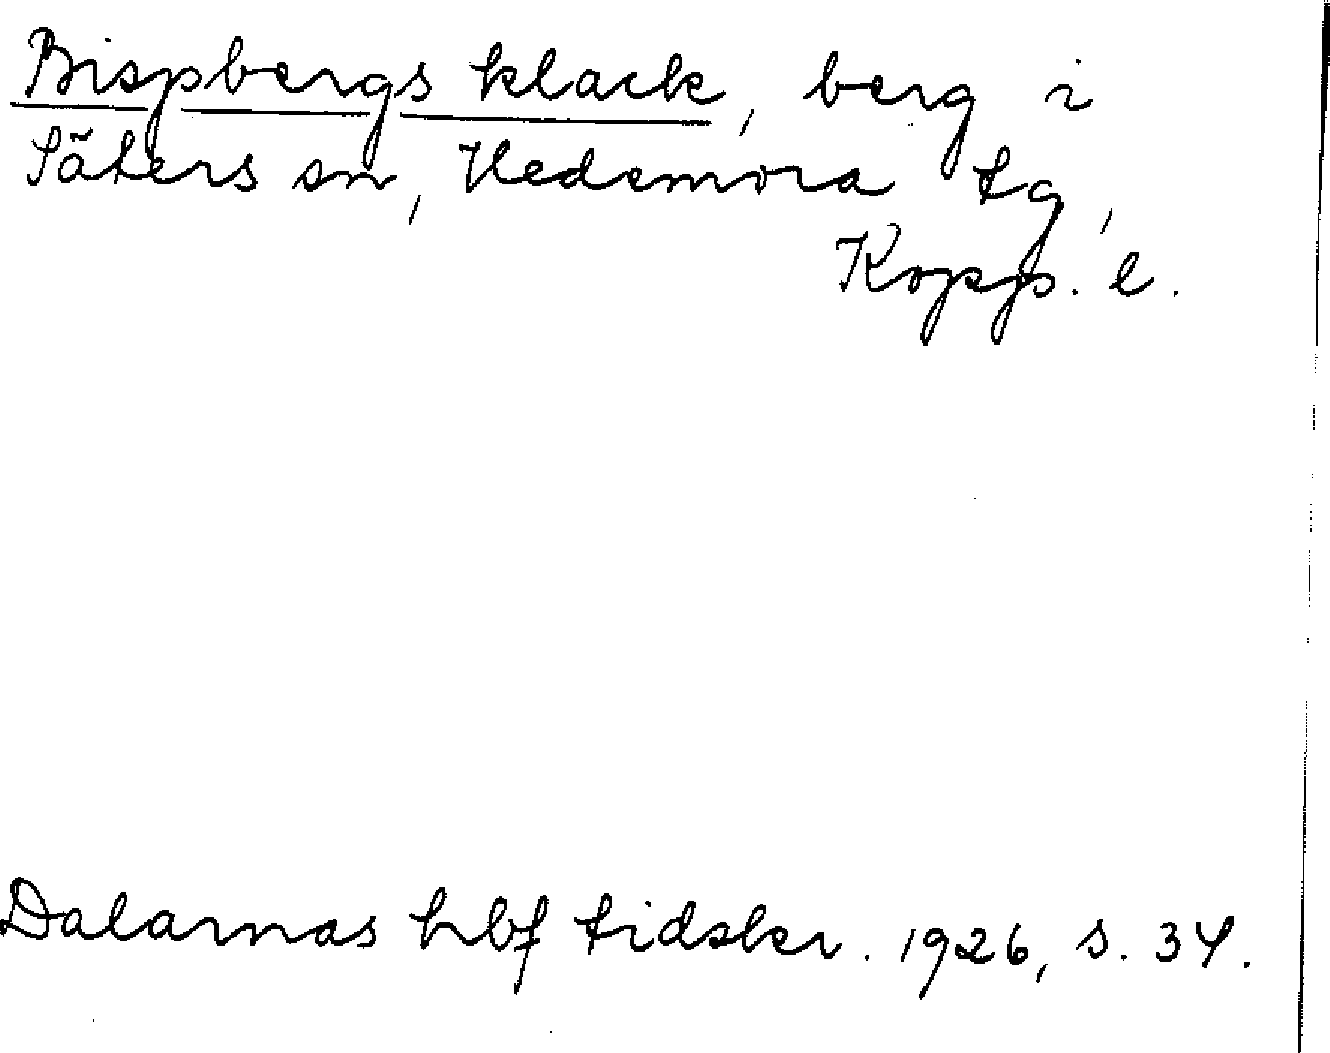 Bispbergs klack, berg i
Säters sn, Hedemora tg,
Kopp. l.
Dalarnas hbf tidskr. 1926, s. 34.